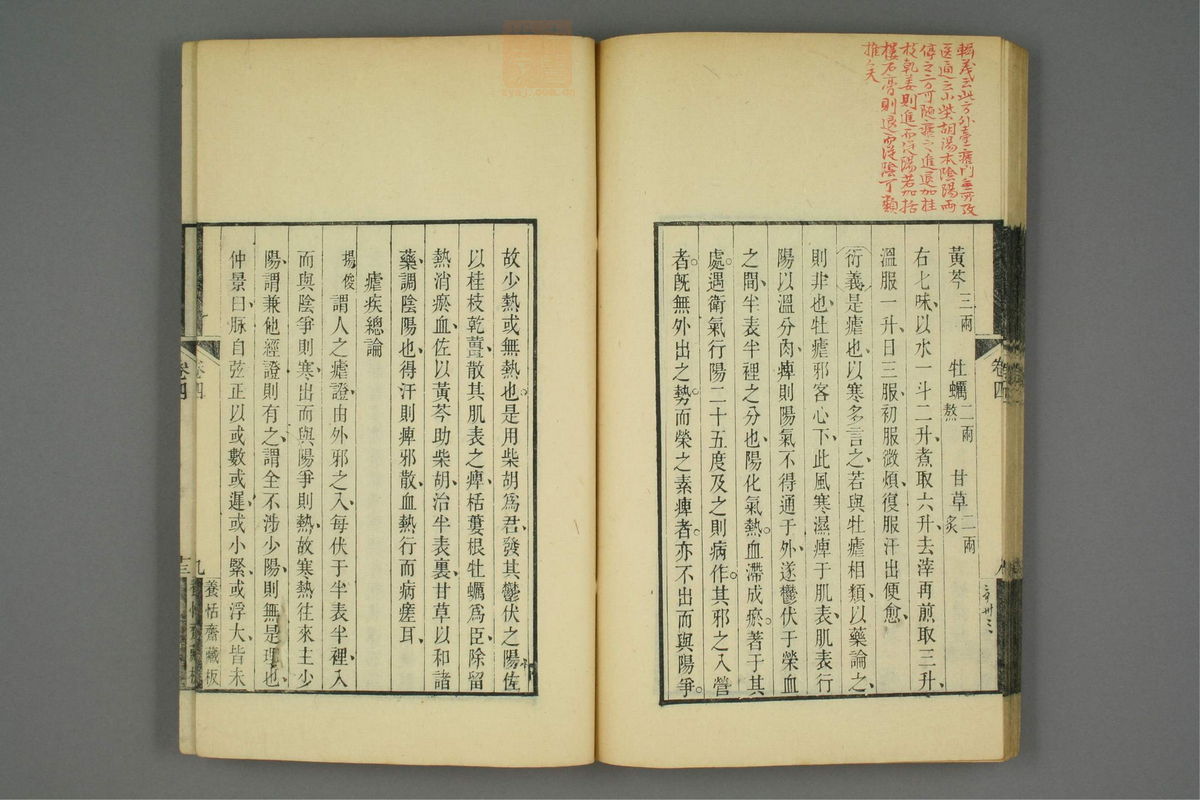 輯義云此方外臺瘧門無所攷
医通云小柴胡湯本陰陽兩
停之方可隨瘧之進退加桂
枝乾姜則進而從陽若加括
樓石膏則退而從陰可類
推矣
黃芩三兩 牡蠣二兩熬 甘草二兩炙
右七味以水一斗二升煮取六升去滓再煎取三升
溫服一升日三服初服微煩復服汗出便愈
衍義是瘧也以寒多言之若與牡瘧相類以藥論之
則非也牡瘧邪客心下此風寒濕痺于肌表肌表行
陽以溫分肉痺則陽氣不得通于外遂鬱伏于榮血
之間半表半裡之分也陽化氣熱血滯成瘀著于其
處遇衛氣行陽二十五度及之則病作其邪之入營
者旣無外出之勢而榮之素痺者亦不出而與陽爭
卷四
故少熱或無熱也是用柴胡爲君發其鬱伏之陽佐
以桂枝乾薑散其肌表之痺栝蔞根牡蠣爲臣除留
熱消瘀血佐以黃芩助柴胡治半表裏甘草以和諸
藥調陰陽也得汗則痺邪散血熱行而病瘥耳
瘧疾總論
楊俊謂人之瘧證由外邪之入每伏于半表半裡入
而與陰爭則寒出而與陽爭則熱故寒熱往來主少
陽謂兼他經證則有之謂全不涉少陽則無是理也
仲景曰脉自弦正以或數或遲或小緊或浮大皆未
卷四
九
養恬齋藏板